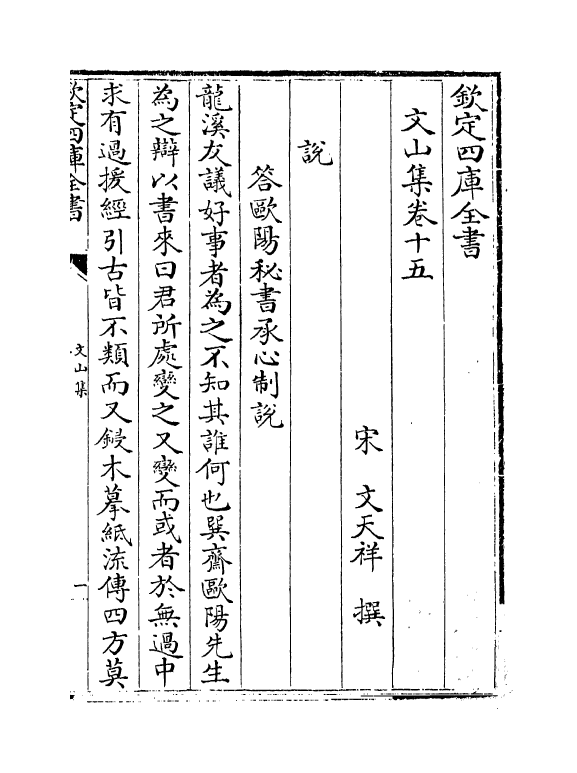 欽定四庫全書
文山集卷十五
宋 文天祥 撰
說
答歐陽秘書承心制說
龍溪友議好事者為之不知其誰何也巽齋歐陽先生
為之辯以書來曰君所處變之又變而或者於無過中
求有過援經引古皆不類而又鋟木摹紙流傳四方莫
欽定四庫全書
文山集
一